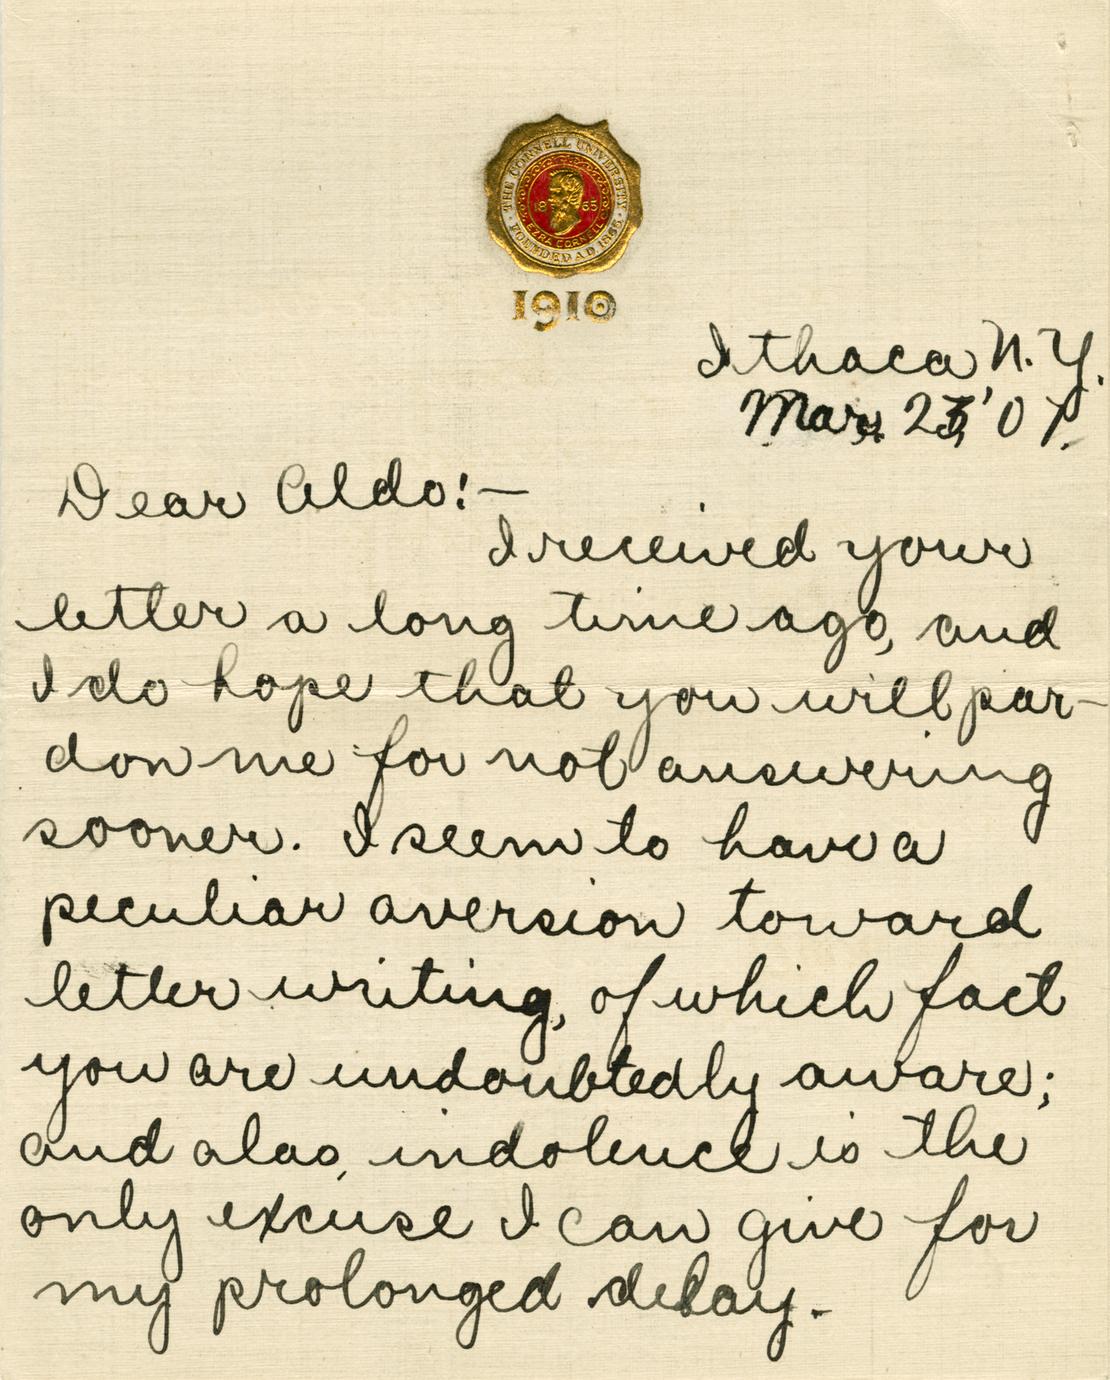 THE CORNELL UNIVERSITY
FOUNDED A.D. 1865
1865
EZRA CORNELL
1910
Ithaca N.Y.
Mar. 23, '07.
Dear Aldo!—
I received your
letter a long time ago, and
I do hope that you will par-
don me for not answering
sooner. I seem to have a
peculiar aversion toward
letter writing, of which fact
you are undoubtedly aware;
and alas, indolence is the
only excuse I can give for
my prolonged delay.